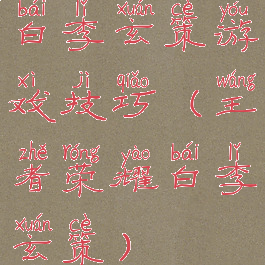 bái lǐ xuán cè yóu
白李玄策游
xì jì qiǎo wáng
戏技巧（王
zhě róng yào bái lǐ
者荣耀白李
xuán cè
玄策）